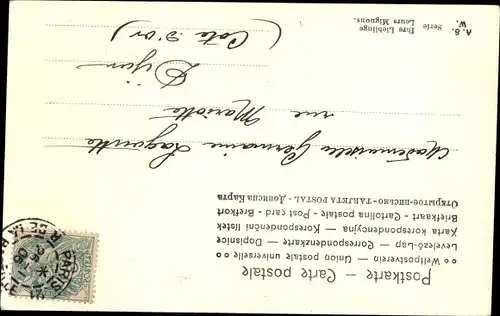 Postkarte — Carte postale
Weltpostverein - Union postale universelle
Levelező-Lap — Correspondenzkarte — Dopisnice
Karta korespondencyjna — Korespondenční listek
Briefkaart - Cartolina postale - Post card - Brefkort
Открытое-письмо - TARJETA POSTAL - Дописна Карта
Mademoiselle Germaine
rue Mariotte
Dijon
(Côte d'Or)
A. & W. Serie Ihre Lieblinge
Leurs Mignons.
PARIS